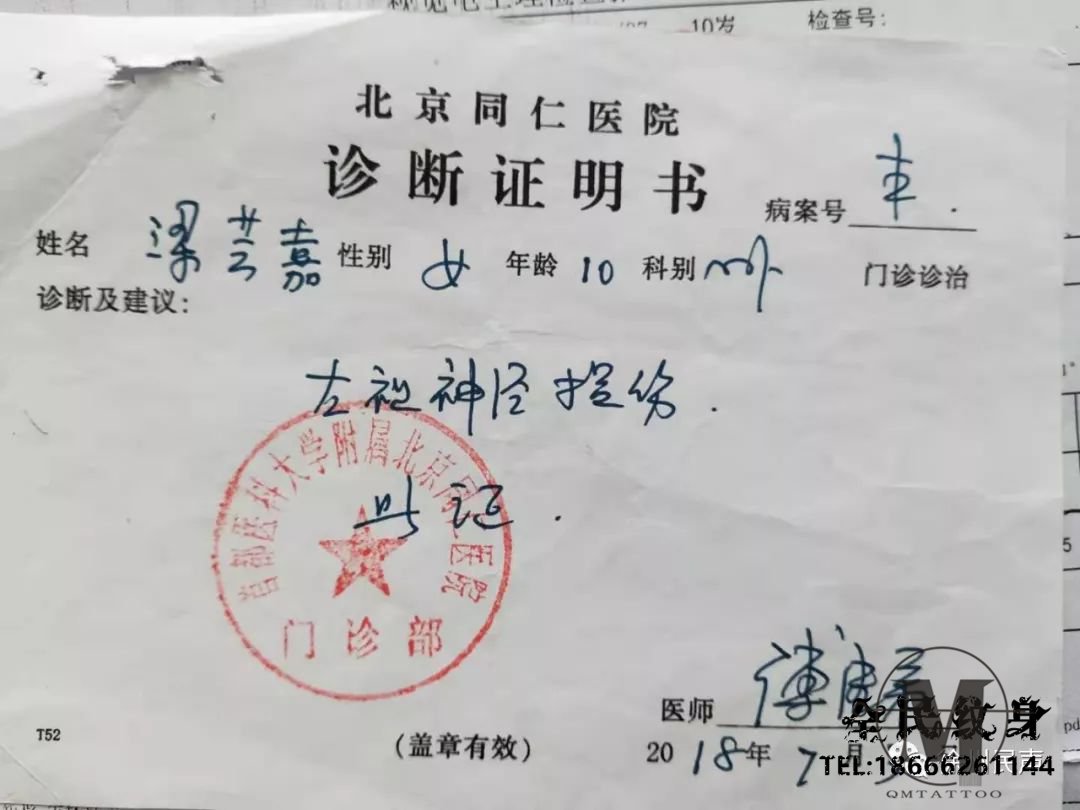 10岁 检查号:
北京同仁医院
诊断证明书
病案号
姓名 梁芸嘉 性别 女 年龄 10 科别 门诊诊治
诊断及建议:
左视神经损伤.
此证.
首都医科大学附属北京同仁医院
门诊部
医师
T52
(盖章有效)
2018年7月
M
全民纹身
TEL:18666261144
QMTATTOO